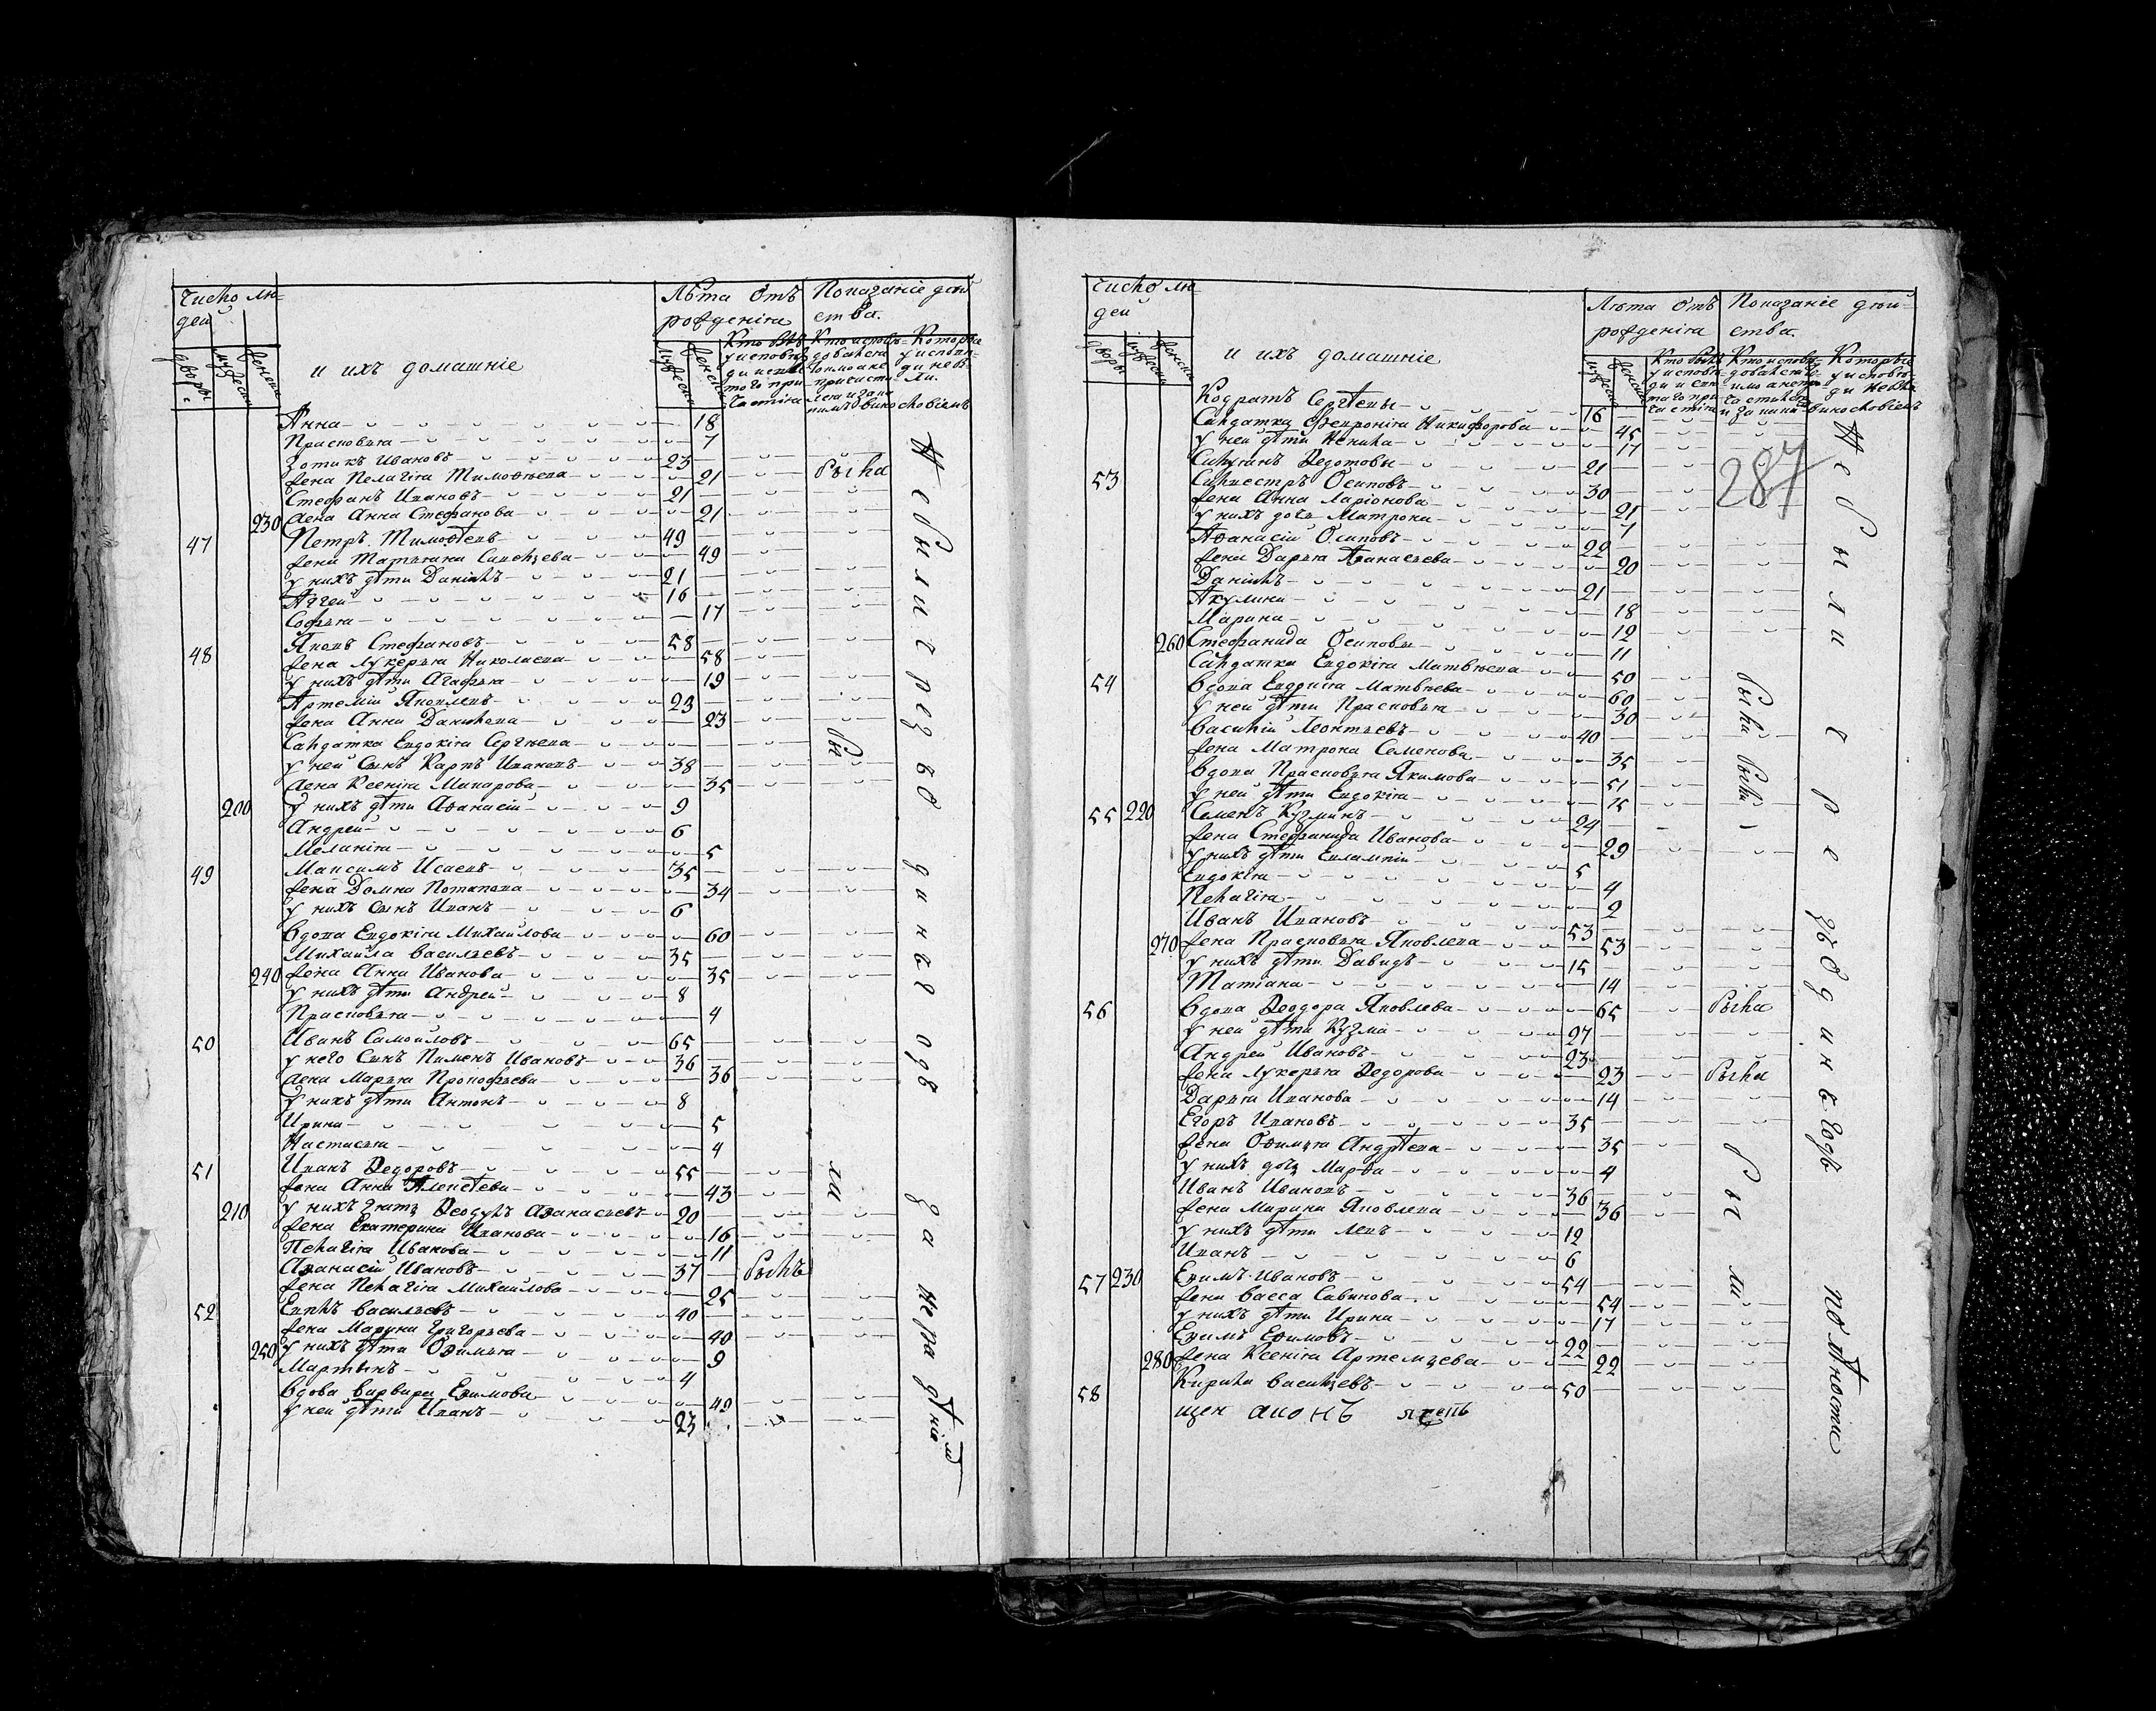 Число лю=
дей
и ихъ домашніе
Лѣта отъ
рожденія
Показаніе дѣй
ства.
Анна 18
Прасковья 7
Зотикъ Ивановъ 23
жена Пелагія Тимофѣева 21 была
Стефанъ Ивановъ 21
230 жена Анна Стефанова 21
47 Петръ Тимофѣевъ 49
жена Татьяна Савельева 49
у нихъ дѣти Даніилъ 21
Аггей 16
Софья 17
48 Яковъ Стефановъ 58
жена Лукерья Николаева 58
у нихъ дѣти Агафья 19
Артемій Яковлевъ 23
жена Анна Данилова 23
Салдатка Евдокія Сергѣева
у ней сынъ Карпъ Ивановъ 38
жена Ксенія Макарова 35
200 у нихъ дѣти Афанасій 9
Андрей 6
Меланія 5
49 Максимъ Исаевъ 35
жена Домна Потапова 34
у нихъ сынъ Иванъ 6
вдова Евдокія Михайлова 60
Михайла Васильевъ 35
240 жена Анна Иванова 35
у нихъ дѣти Андрей 8
Прасковья 4
50 Иванъ Самойловъ 65
у него сынъ Пименъ Ивановъ 36
жена Марья Прокофьева 36
у нихъ дѣти Антонъ 8
Ирина 5
Настасья 4
51 Иванъ Ѳедоровъ 55
жена Анна Алексѣева 43
210 у нихъ зять Ѳеодулъ Афанасьевъ 20
жена Екатерина Иванова 16
Пелагія Иванова 11
Афанасій Ивановъ 37 былъ
жена Пелагія Михайлова 25
52 Васильевъ 40
жена Марина Григорьева 40
250 у нихъ дѣти Офимья 9
Мартинъ 4
вдова Варвара Ефимова 49
у ней дѣти Иванъ 23
не были чрез въ одинъ годъ за нерадѣніемъ
Число лю
дей
и ихъ домашніе
Лѣта отъ
рожденія
Показаніе дѣй=
ства.
287
Кодратъ Сергѣевы 16
Салдатка Февронія Никифорова 45
у ней дѣти Ненила 17
Ѳедотовы 21
53 Силвестръ Осиповъ 30
жена Анна Ларіонова 21
у нихъ дочь Матрона 1
Афанасій Осиповъ 22
жена Дарья Афанасьева 20
Даніилъ 21
Акулина 18
Марина 12
260 Стефанида Осиповы 11
Салдатка Евдокія Матвѣева 50
54 вдова Евдокія Матвѣева 60
у ней дѣти Прасковья 30
Василій Леонтьевъ 40
жена Матрона Семенова 35
вдова Прасковья Якимова 51
у ней дѣти Евдокія 15
55 220 Семенъ Кузминъ 24
жена Стефанида Иванова 29
у нихъ дѣти Евлампій 5
Евдокія 4
Пелагія 2
Иванъ Ивановъ 53
270 жена Прасковья Яковлева 53
у нихъ дѣти Давидъ 15
Татіана 14
56 вдова Ѳеодора Яковлева 65 была
у ней дѣти Кузма 27
Андрей Ивановъ 23
жена Лукерья Ѳедорова 23 была
Дарья Иванова 14
Егоръ Ивановъ 35
жена Офимья Андрѣева 35
у нихъ дочь Марфа 4
Иванъ Ивановъ 36
жена Марина Яковлева 36
у нихъ дѣти Левъ 12
Иванъ 6
57 230 Ефимъ Ивановъ 54
жена Васса Савинова 54
у нихъ дѣти Ирина 17
Ефимъ Ефимовъ 22
280 жена Ксенія Артемьева 22
58 Кирила Васильевъ 50
были
не были чрезъ одинъ годъ